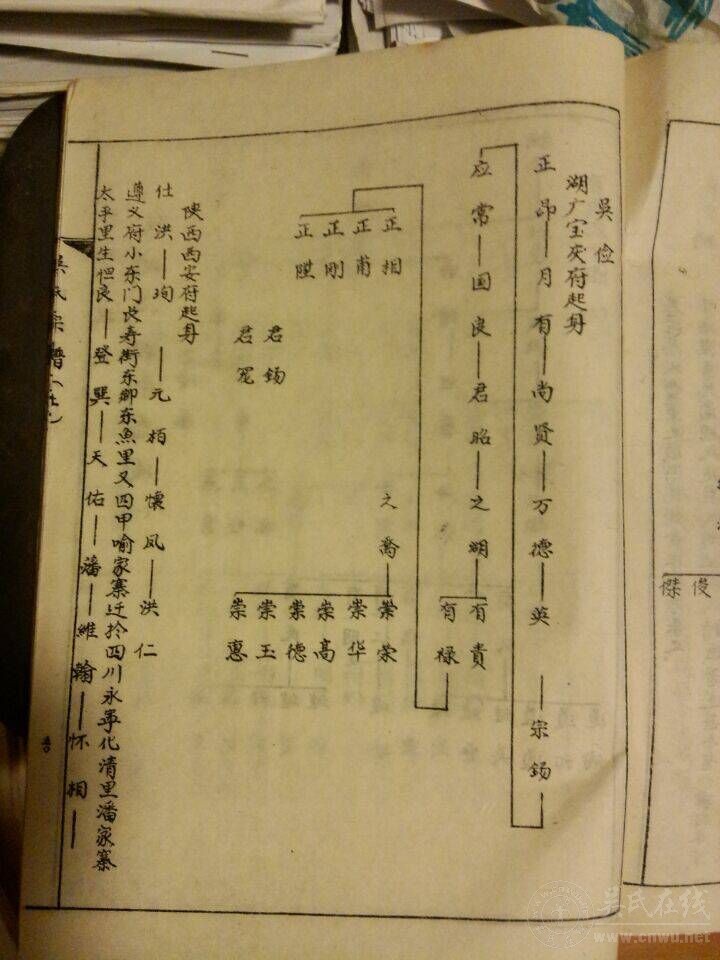 吳俭
湖广宝庆府起身
正昂—月有—尚贤—万德—英—宗钖
应常—国良—君昭—之湖—有貴
有禄
正相
正甫
正刚
正陞
之喬
崇荣
崇华
崇高
崇德
崇玉
崇惠
君钖
君宠
陕西西安府起身
仕洪—珣—元栢—懷凤—洪仁
遵义府小东门长寿街东御东魚里又四甲喻家寨迁扵四川永寧化清里潘家寨
太平里生恒良—登巽—天佑—潘—維翰—怀相—
吳氏宗譜
傑
俊
吴氏在线
www.cnwu.net